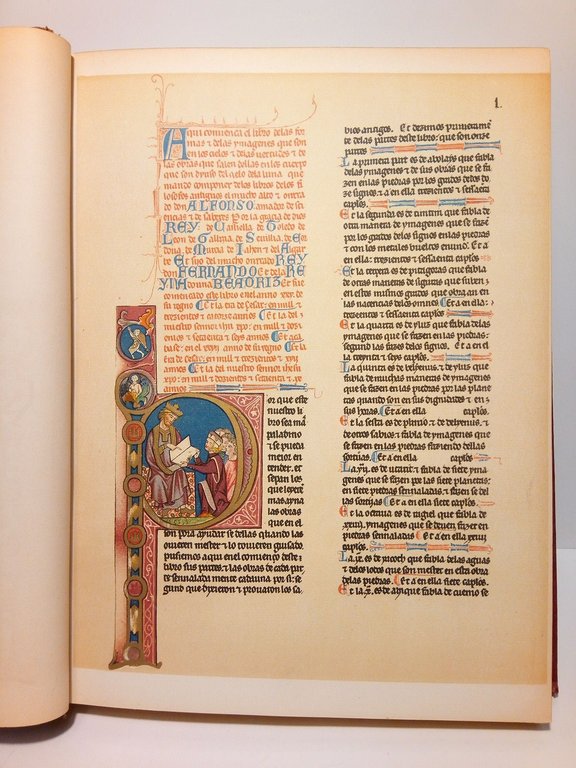 1.
Aqui comiença el libro delas for
mas & delas ymagenes que son
en los cielos & delas uertudes & de
las obras que salen dellas en los cuerpos
que son dyuso del cielo dela luna que
mando componer delos libros delos fi
losofos antiguos el mucho alto & onrra
do don ALFONSO amador de sci
encias & de saberes por la gracia de dios
REY de Castiella de Toledo de
Leon de Gallizia de Seuilla de Cor
doua de Murcia de Iahen & del Algar
ue Et fijo del mucho onrrado REY
don FERNANDO Et dela RE
YNA donna BEATRIZ Et fue
començado este libro en el anno
Et la era de Cesar en mill &
trezientos & catorze annos Et la del
nuestro sennor ihu xpo en mill & do
zientos & setenta & seys annos Et aca
base en el anno de su regno Et la
Era de Cesar en mill & trezientos & xvii
annos Et la del nuestro sennor ihesu
xpo en mill & dozientos & setenta & ix
annos
Por que este
nuestro li
bro sea mas
paladino
& se pueda
meior en
tender et
sepan los
que leyeren
mas ayna
las obras
que en el
son pora ayudar se dellas quando las
ouieren mester & lo touieren guisado
pusiemos aqui en el comienço deste li
bro sus partes & las obras de cada par
te sennalada mente cadauna por si se
gund que dixieron & prouaron los sa
bios antigos. Et dezimos primeramien
te delas partes deste libro que son onze
partes
La primera part es de abolays que fabla
delas ymagenes & de sus obras que se fa
zen en las piedras por los grados delos do
ze signos & a en ella trezientos & sessaeta
caplos.
Et la segunda es de timtim que fabla de
otra manera de ymagenes que se fazen
por los grados delos signos en las piedras
& con los metales bueltos en uno. Et a
en ella trezientos & sessaenta caplos
Et la tercera es de pitagoras que fabla
de otras maneras de figuras que suben
en estos mismos grados que obran en
las nacencias delos omnes Et a en ella
trezientos & sessaenta caplos
Et la quarta es de yluz que fabla delas
ymagenes que se fazen en las piedras
segund las fazes delos signos. Et a en el
la treynta & seys caplos.
La quinta es de belyenus & de yluz que
fabla de muchas maneras de ymagenes
que se fazen en las piedras por los planetas
quando son en sus dignidades & en
sus horas. Et a en ella caplos.
Et la sesta es de plinio & de belyenus &
de otros sabios & fabla de ymagenes que
se fazen en las piedras faziendo dellas
sortijas Et a en ella caplos
La .vii. es de utarit & fabla de siete yma
genes que se fazen por los siete planetas
en siete piedras sennaladas & fazen se del
las sortijas Et a en ella siete caplos.
Et la octaua es de ragiel que fabla de
xxiiij. ymagenes que se deuen fazer en
piedras sennaladas Et a en ella xxiiij
caplos.
La .ix. es de yacoth que fabla delas aguas
& delos lodos que son mester en esta obra
delas piedras. Et a en ella siete caplos.
Et la .x. es de aly que fabla de cuemo se